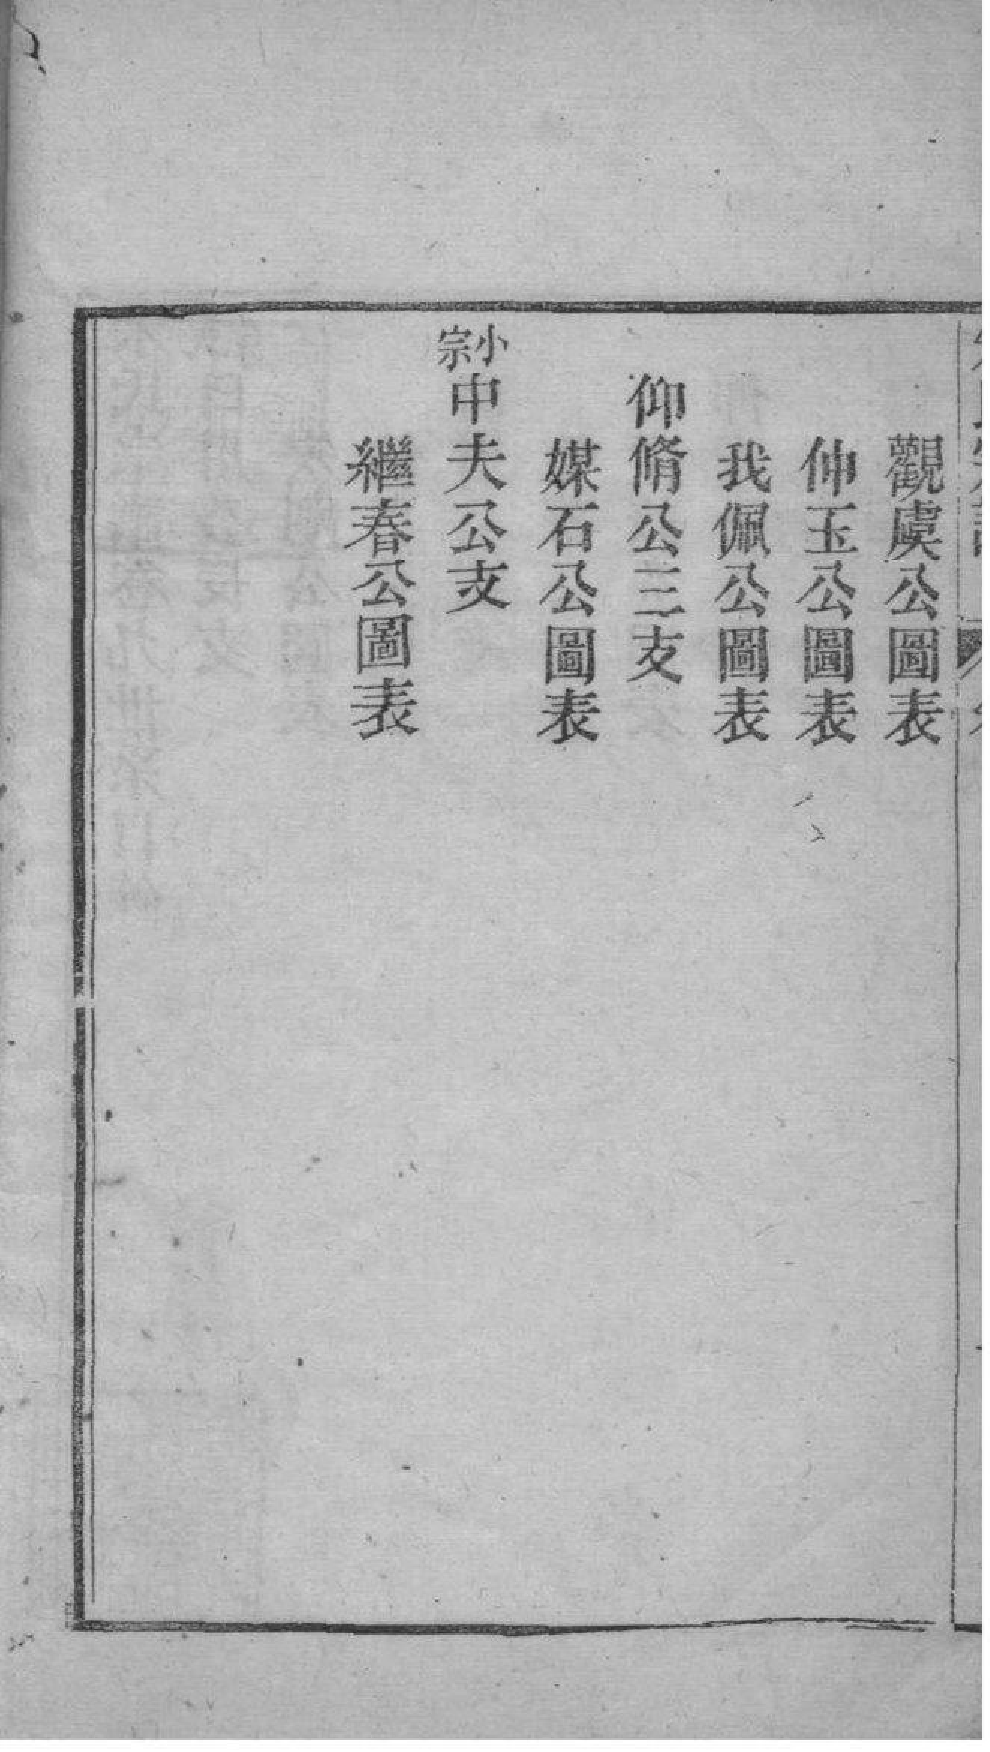 觀虞公圖表
仲玉公圖表
我佩公圖表
仰脩公三支
媒石公圖表
小宗中夫公支
繼春公圖表